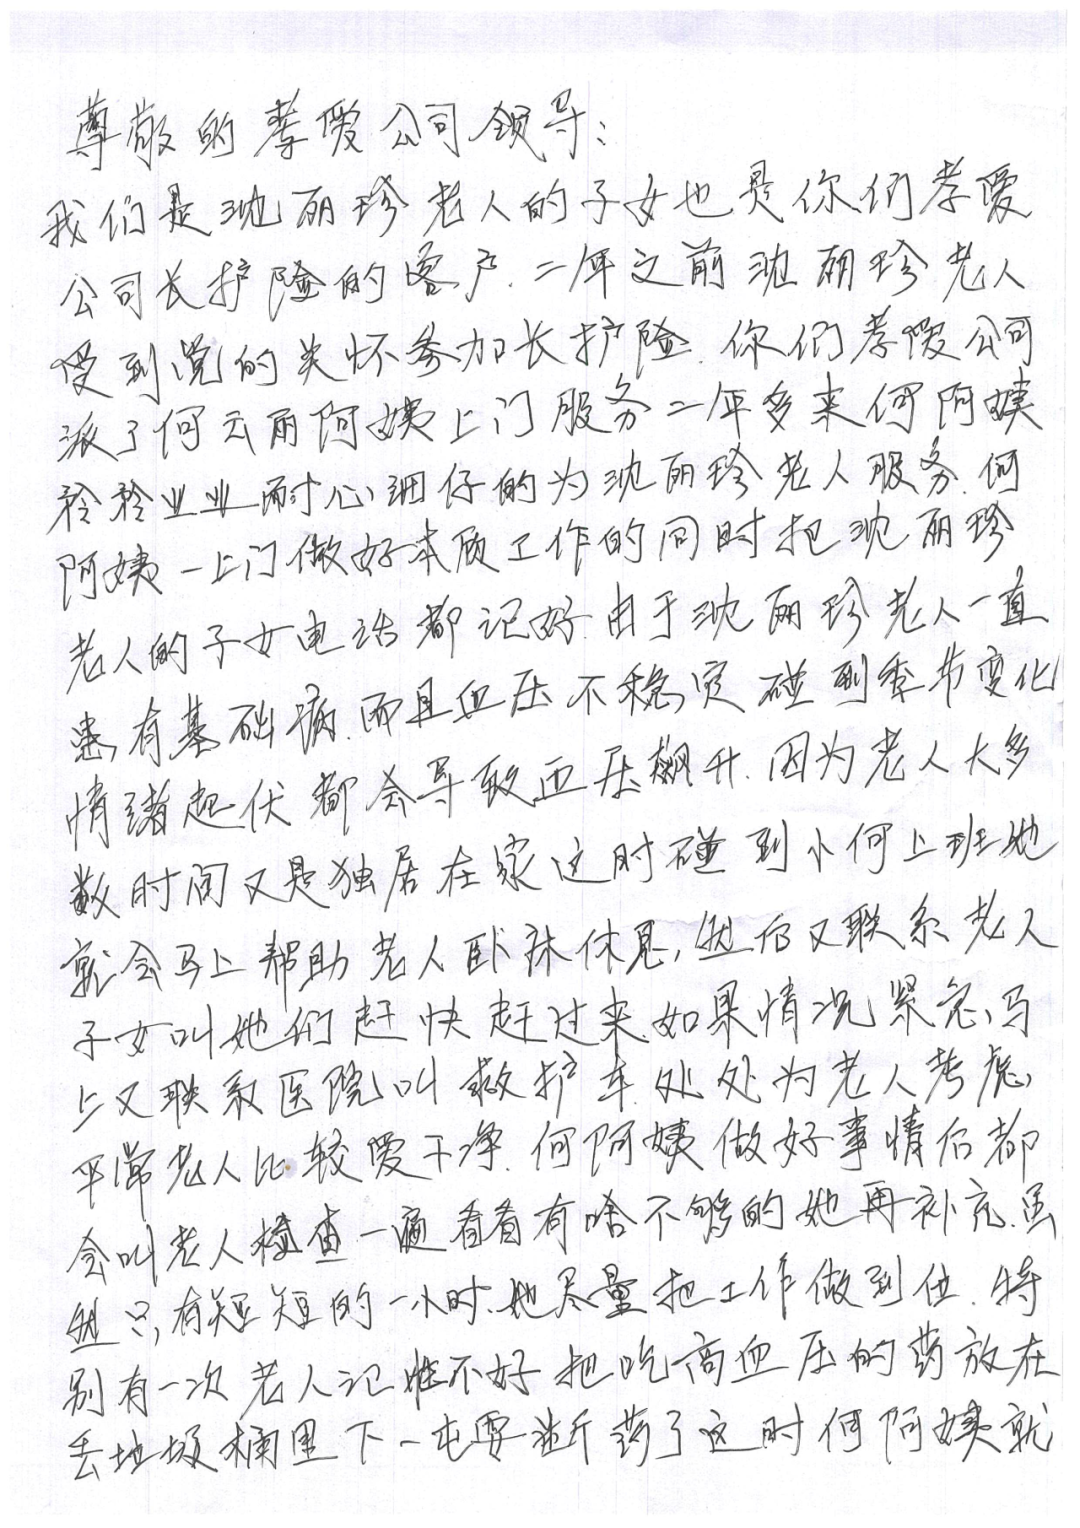 尊敬的孝爱公司领导:
我们是沈丽珍老人的子女也是你们孝爱
公司长护险的客户.二年之前沈丽珍老人
受到党的关怀参加长护险.你们孝爱公司
派了何云丽阿姨上门服务二年多来何阿姨
矜矜业业耐心细仔的为沈丽珍老人服务.何
阿姨一上门做好本质工作的同时把沈丽珍
老人的子女电话都记好.由于沈丽珍老人一直
患有基础病.而且血压不稳定碰到季节变化
情绪起伏都会导致血压飙升.因为老人大多
数时间又是独居在家这时碰到小何上班她
就会马上帮助老人卧床休息,然后又联系老人
子女叫她们赶快赶过来.如果情况紧急马
上又联系医院叫救护车.处处为老人考虑,
平常老人比较爱干净.何阿姨做好事情后都
会叫老人检查一遍看看有啥不够的她再补充.虽
然只有短短的一小时.她尽量把工作做到位.特
别有一次老人记性不好把吃高血压的药放在
丢垃圾桶里下一屯要断药了这时何阿姨就